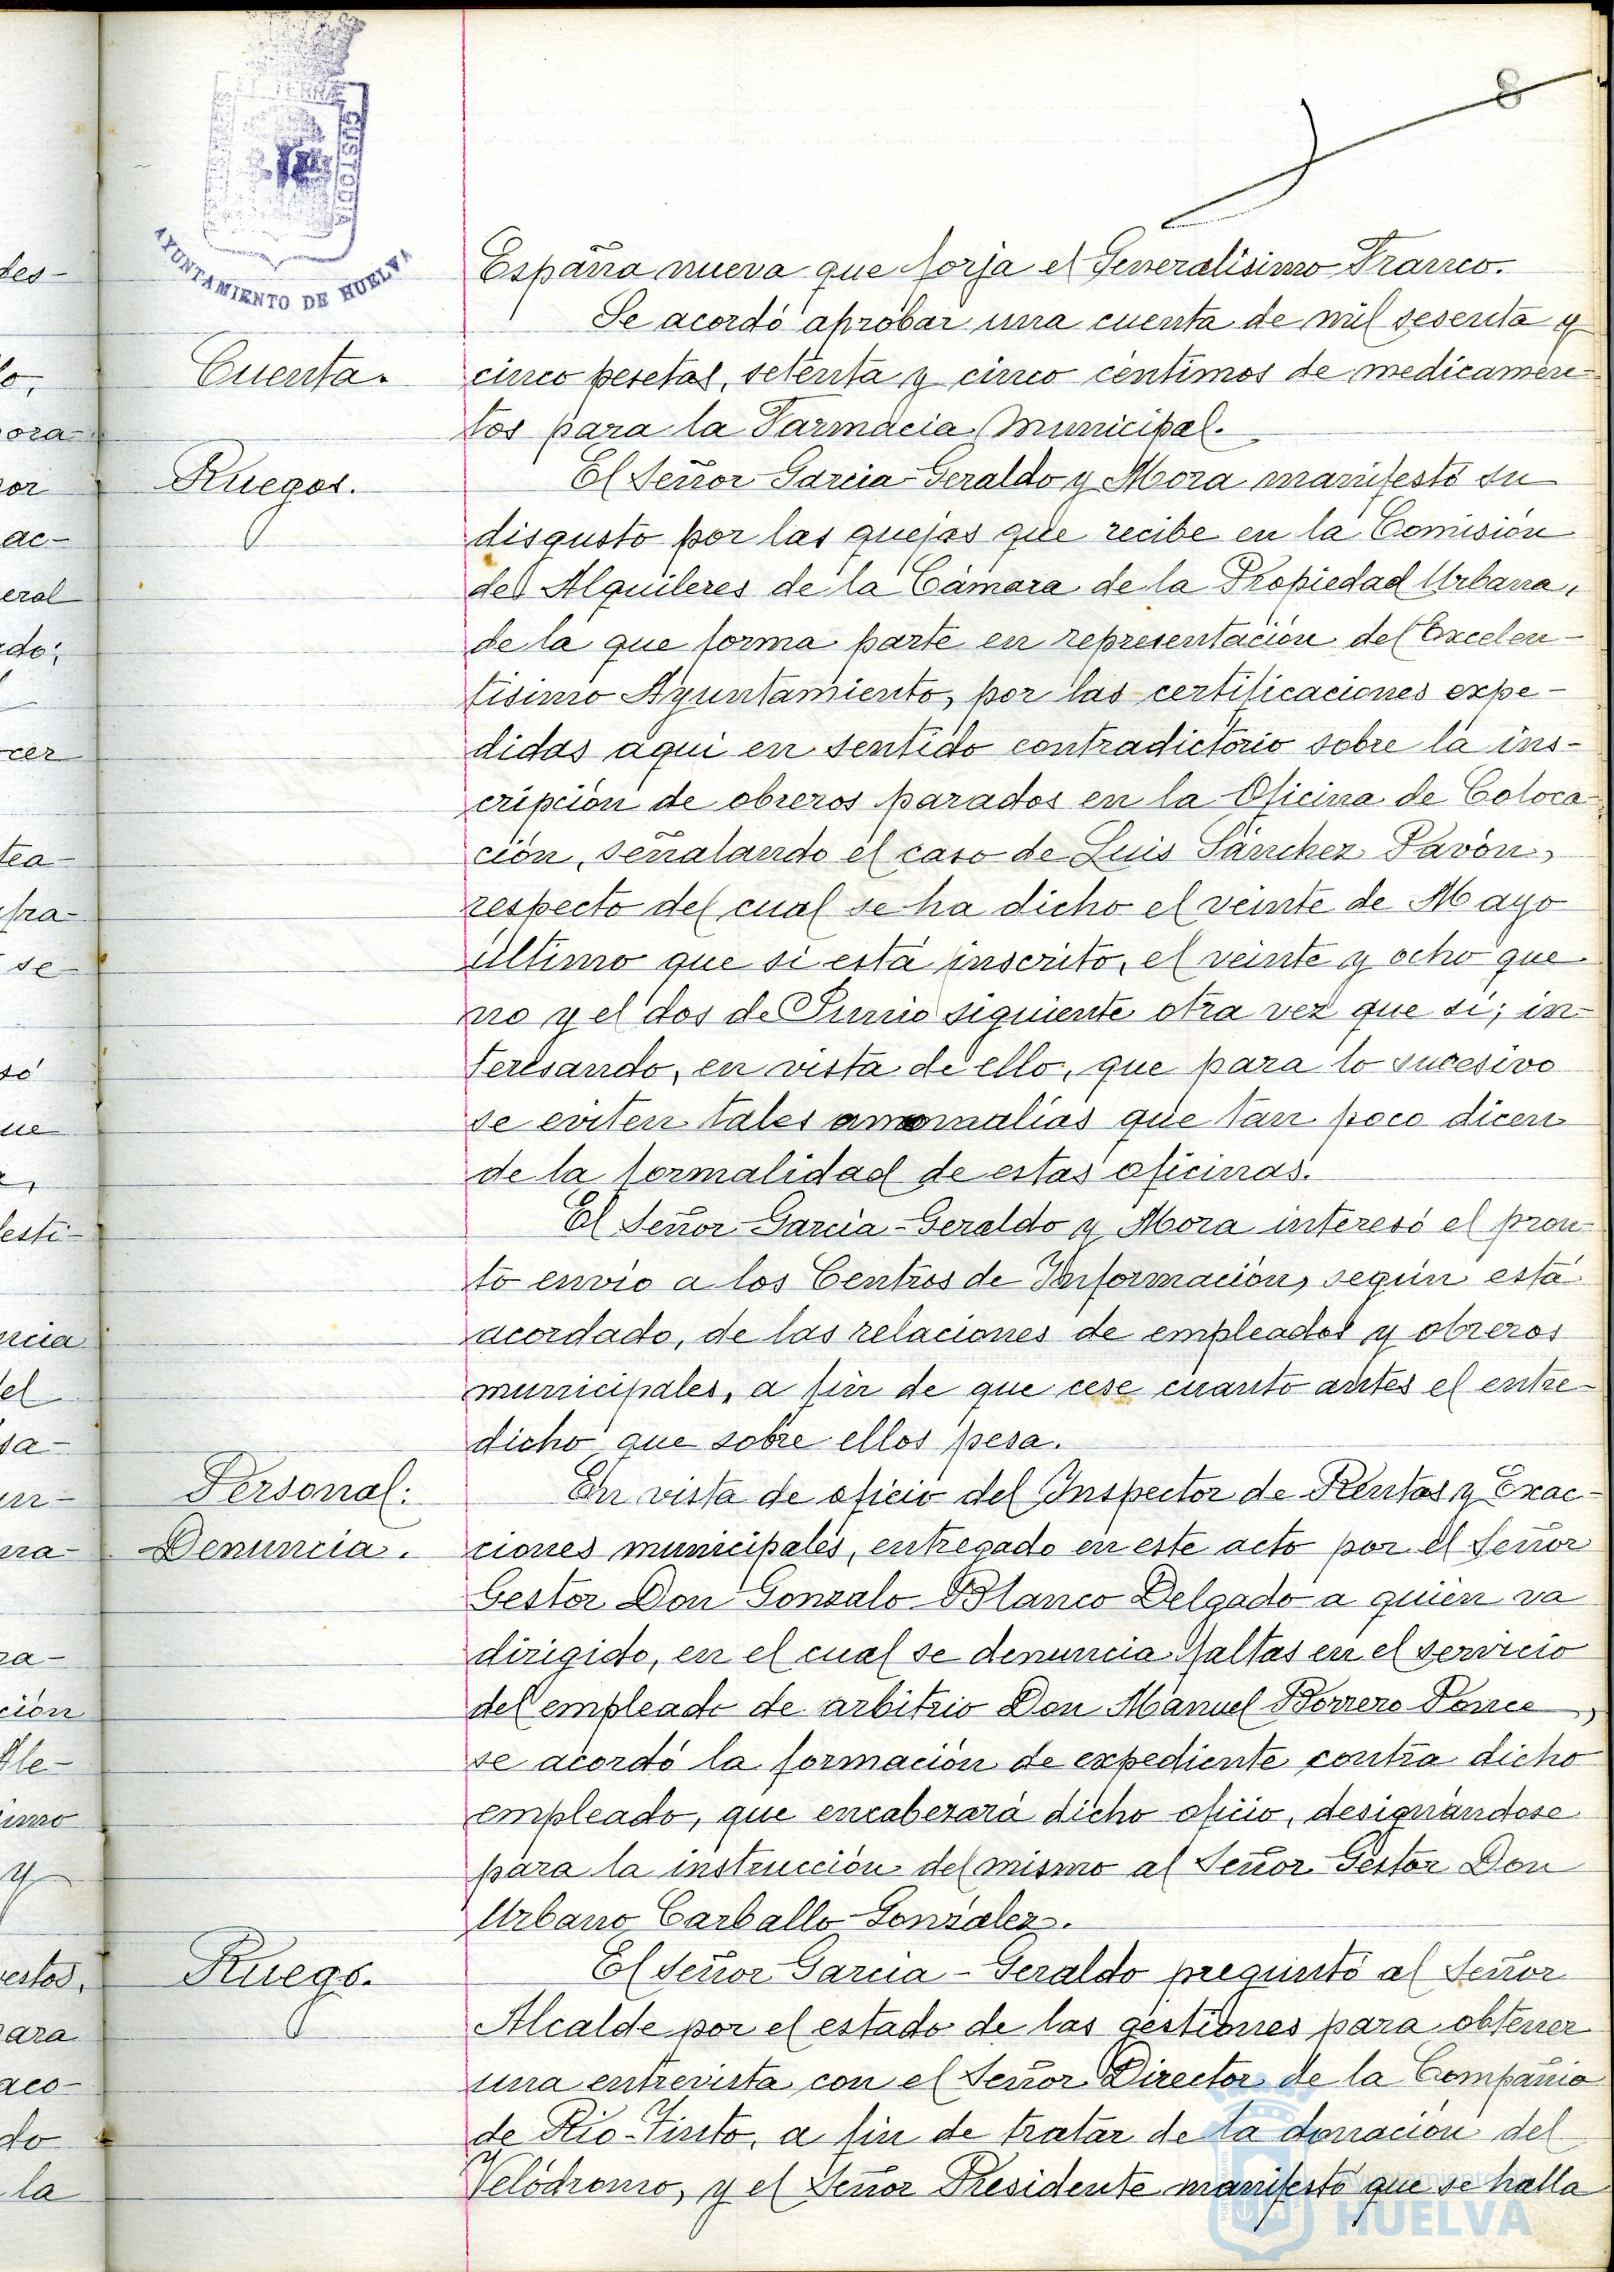 8
TERRÆ
CUSTODIA
AYUNTAMIENTO DE HUELVA
España nueva que forja el Generalísimo Franco.
Se acordó aprobar una cuenta de mil sesenta y
Cuenta.
cinco pesetas, setenta y cinco céntimos de medicamen-
tos para la Farmacia Municipal.
Ruegos.
El Señor García-Geraldo y Mora manifestó su
disgusto por las quejas que recibe en la Comisión
de Alquileres de la Cámara de la Propiedad Urbana,
de la que forma parte en representación del Excelen-
tísimo Ayuntamiento, por las certificaciones expe-
didas aquí en sentido contradictorio sobre la ins-
cripción de obreros parados en la Oficina de Coloca-
ción, señalando el caso de Luis Sánchez Pavón,
respecto del cual se ha dicho el veinte de Mayo
último que si está inscrito, el veinte y ocho que
no y el dos de Junio siguiente otra vez que sí; in-
teresando, en vista de ello, que para lo sucesivo
se eviten tales anomalías que tan poco dicen
de la formalidad de estas oficinas.
El Señor García-Geraldo y Mora interesó el pron-
to envío a los Centros de Información, según está
acordado, de las relaciones de empleados y obreros
municipales, a fin de que cese cuanto antes el entre-
dicho que sobre ellos pesa.
Personal:
Denuncia.
En vista de oficio del Inspector de Rentas y Exac-
ciones municipales, entregado en este acto por el Señor
Gestor Don Gonzalo Blanco Delgado a quien va
dirigido, en el cual se denuncia faltas en el servicio
del empleado de arbitrio Don Manuel Borrero Ponce,
se acordó la formación de expediente contra dicho
empleado, que encabezará dicho oficio, designándose
para la instrucción del mismo al Señor Gestor Don
Urbano Carballo González.
Ruego.
El Señor García-Geraldo preguntó al Señor
Alcalde por el estado de las gestiones para obtener
una entrevista con el Señor Director de la Compañía
de Río-Tinto, a fin de tratar de la donación del
Velódromo, y el Señor Presidente manifestó que se halla
Ayuntamiento de
HUELVA